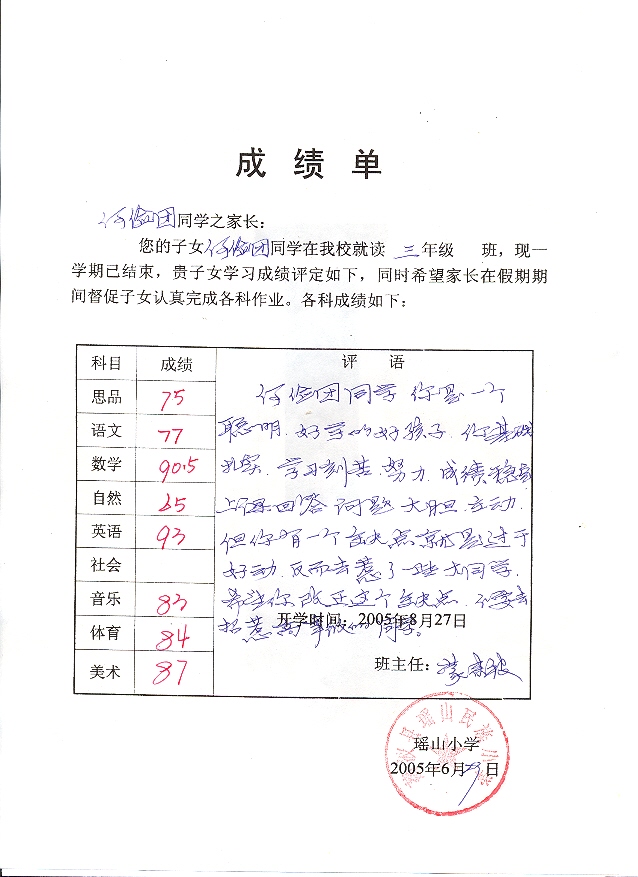 成 绩 单
何俭团同学之家长：
您的子女何俭团同学在我校就读 三年级 班，现一
学期已结束，贵子女学习成绩评定如下，同时希望家长在假期期
间督促子女认真完成各科作业。各科成绩如下：
科目 成绩 评 语
思品 75
语文 77
数学 90.5
自然
英语 93
社会
音乐 83
体育 84
美术 87
何俭团同学 你是一个
聪明、好学的好孩子，你基础
扎实，学习刻苦、努力，成绩稳
上课回答问题大胆主动，
但你有一个缺点就是过于
好动，反而去惹了一些大同学，
希望你改正这个缺点，不要去
招惹 同学。
开学时间：2005年8月27日
班主任：
瑶山小学
2005年6月 日
瑶山民族小学